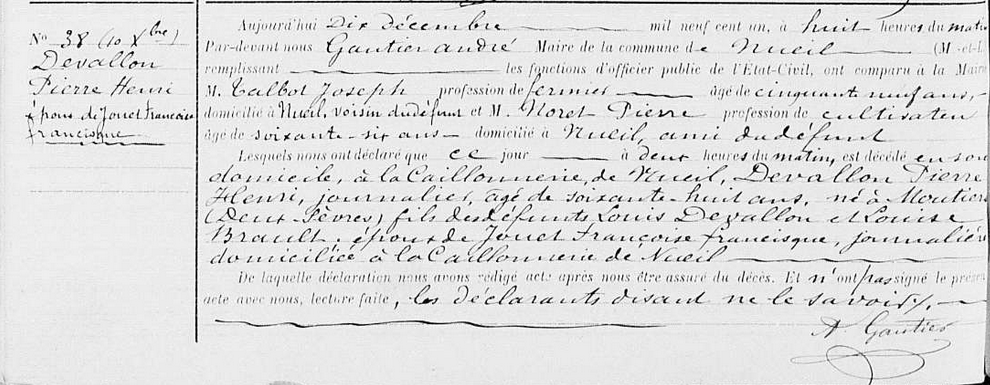 No 38 (10 Xbre)
Devallon
Pierre Henri
époux de Jouet Francoise
francisque
Aujourd'hui Dix décembre mil neuf cent un, à huit heures du matin
Par-devant nous Gautier andré Maire de la commune de Nueil (M.-et-L.
remplissant les fonctions d'officier public de l'État-Civil, ont comparu à la Mairie
M. Talbot Joseph profession de fermier âgé de cinquante neuf ans,
domicilié à Nueil, voisin du défunt et M. Noret Pierre profession de cultivateu
âgé de soixante-six ans domicilié à Nueil, ami du défunt
Lesquels nous ont déclaré que ce jour à deux heures du matin, est décédé en son
domicile, à la Caillonnerie, de Nueil, Devallon Pierre
Henri, journalier, âgé de soixante-huit ans, né à Moutiers
(Deux-Sèvres) fils des défunts Louis Devallon et Louise
Brault, époux de Jouet Françoise francisque, journalière
domiciliée à la Caillonnerie de Nueil
De laquelle déclaration nous avons rédigé acte après nous être assuré du décès. Et n'ont pas signé le présent
acte avec nous, lecture faite, les déclarants disant ne le savoir.
A Gautier